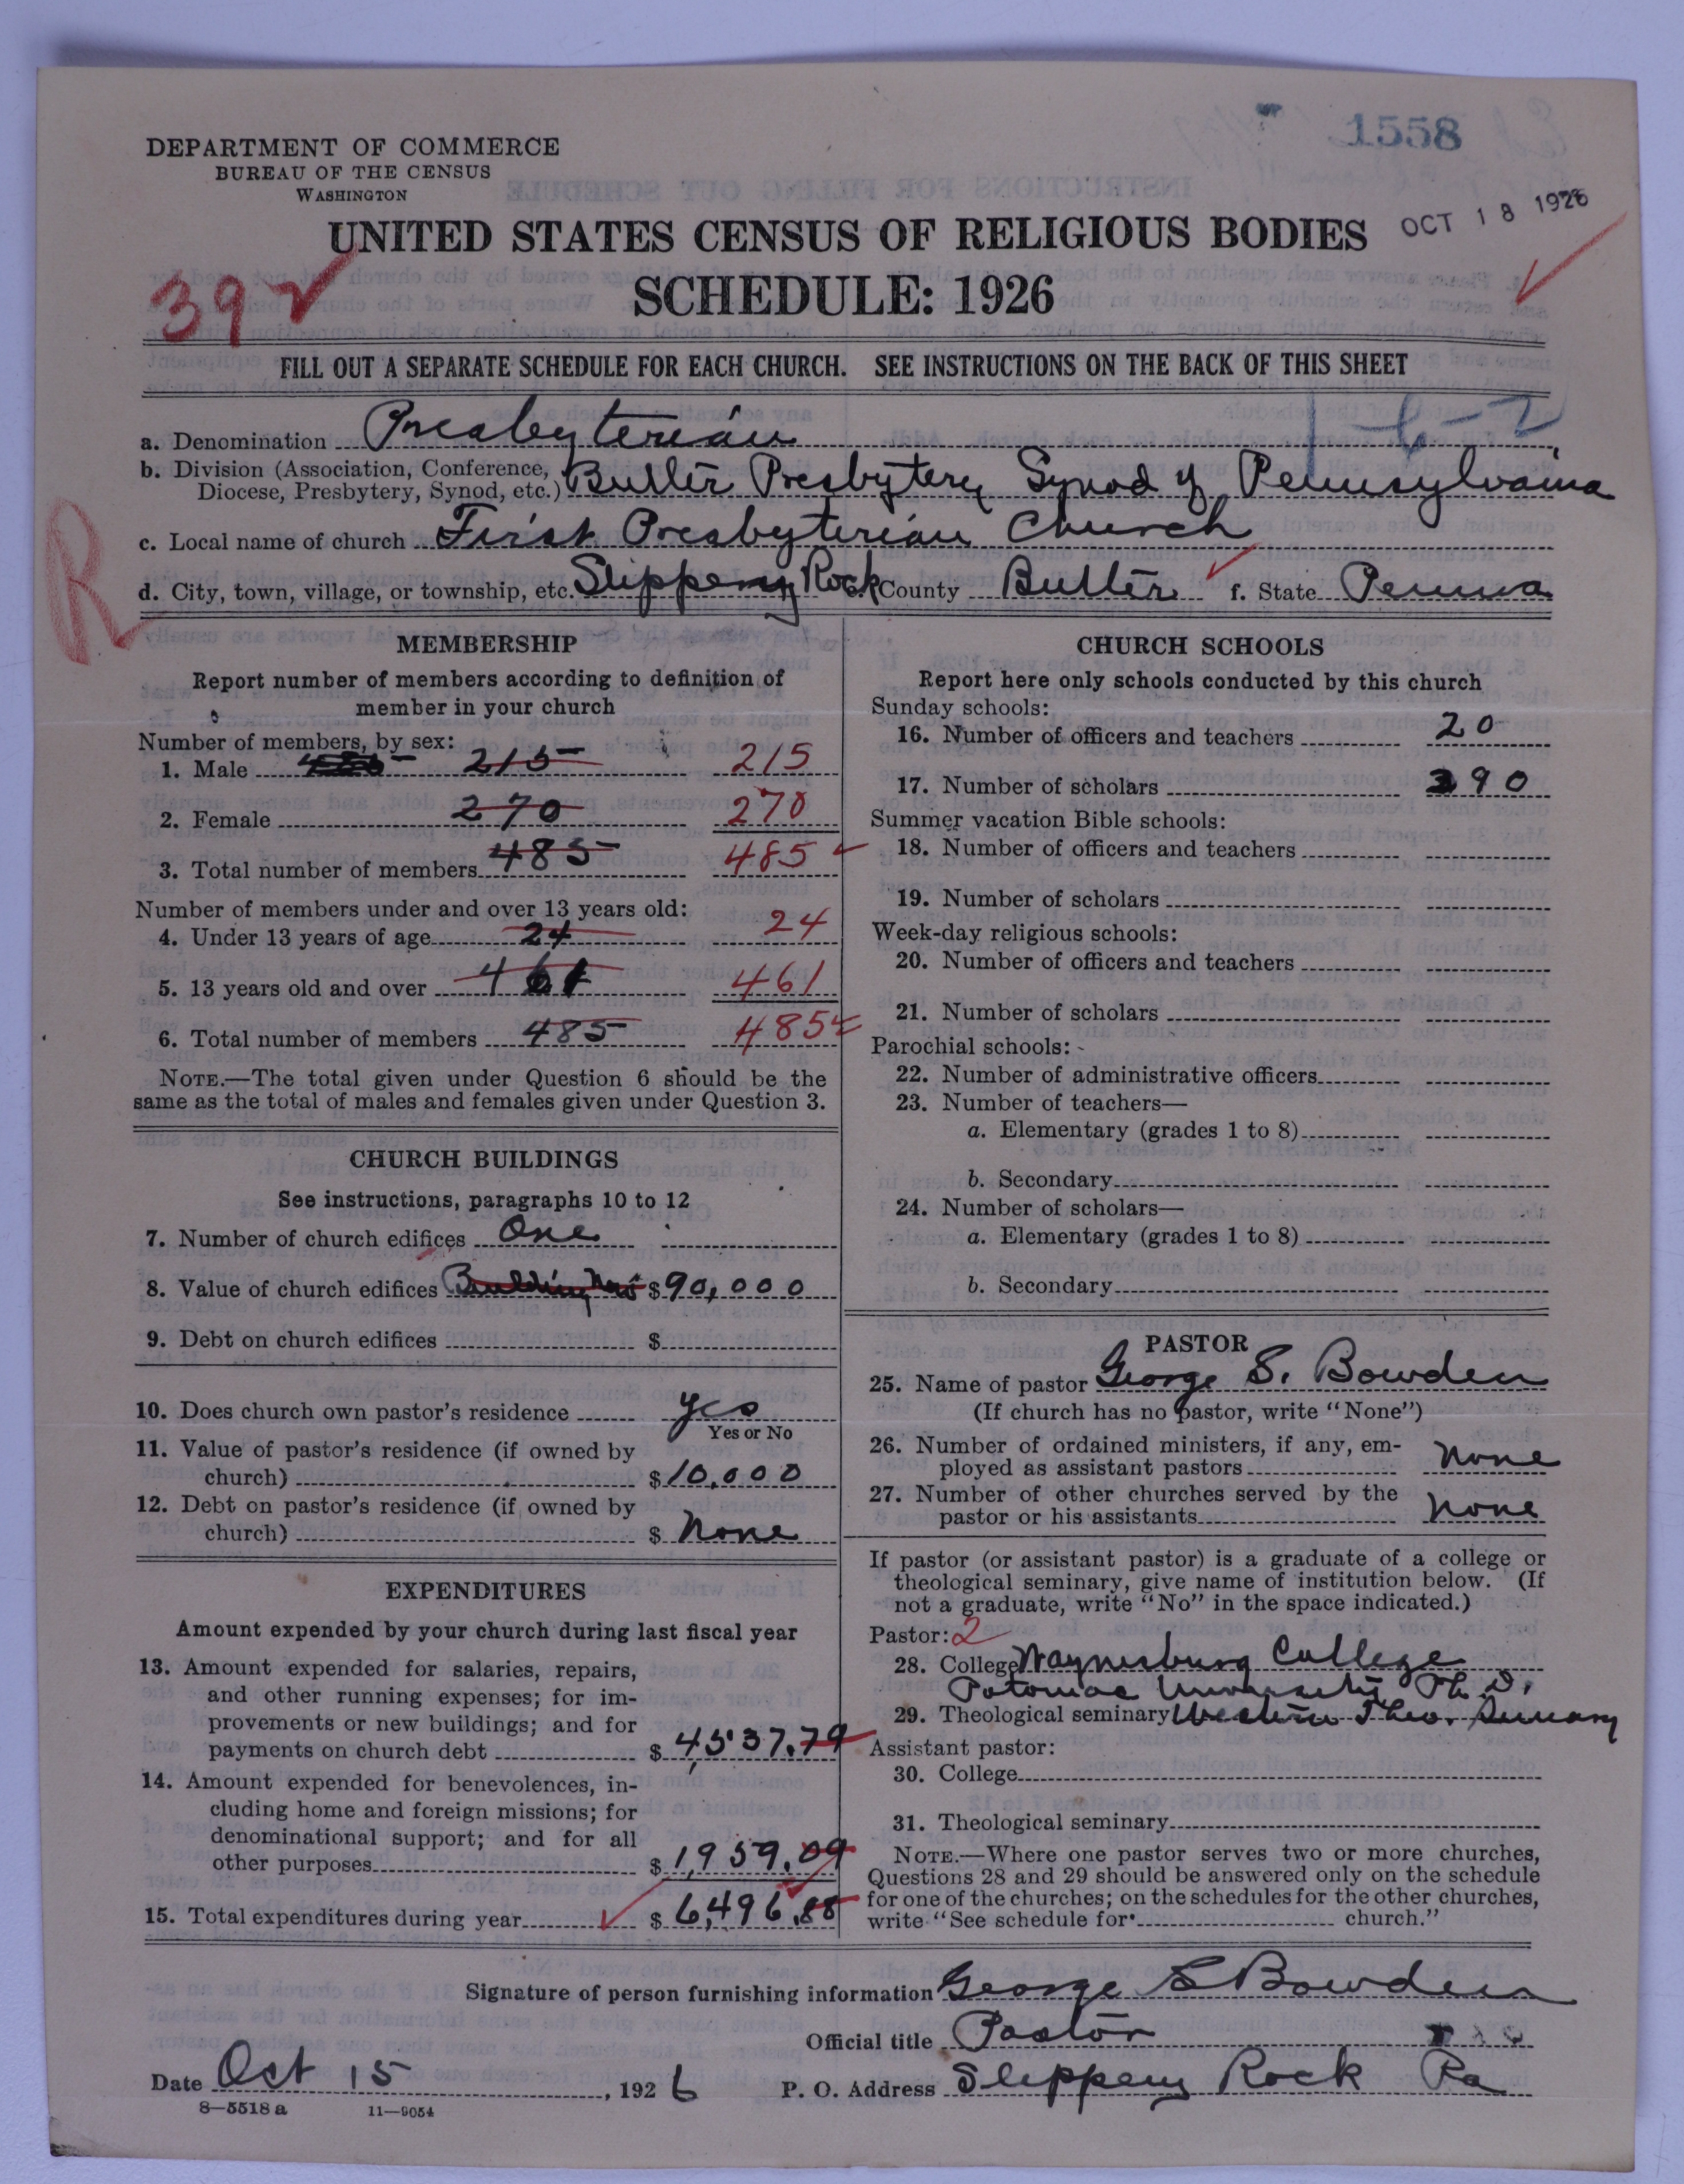 1558
DEPARTMENT OF COMMERCE
BUREAU OF THE CENSUS
WASHINGTON
OCT 18 1926
UNITED STATES CENSUS OF RELIGIOUS BODIES
SCHEDULE: 1926
39
FILL OUT A SEPARATE SCHEDULE FOR EACH CHURCH. SEE INSTRUCTIONS ON THE BACK OF THIS SHEET
a. Denomination Presbyterian
b. Division (Association, Conference,
Diocese, Presbytery, Synod, etc.) Butler Presbytery Synod of Pennsylvania
c. Local name of church First Presbyterian Church
R
d. City, town, village, or township, etc. Slippery Rock e. County Butler f. State Penna
MEMBERSHIP
Report number of members according to definition of
member in your church
Number of members, by sex:
1. Male 215 215
2. Female 270 270
3. Total number of members 485 485
Number of members under and over 13 years old:
4. Under 13 years of age 24 24
5. 13 years old and over 461 461
6. Total number of members 485 485
NOTE.—The total given under Question 6 should be the
same as the total of males and females given under Question 3.
CHURCH BUILDINGS
See instructions, paragraphs 10 to 12
7. Number of church edifices One
8. Value of church edifices Building New $90,000
9. Debt on church edifices $
10. Does church own pastor's residence yes
Yes or No
11. Value of pastor's residence (if owned by
church) $10,000
12. Debt on pastor's residence (if owned by
church) $ None
EXPENDITURES
Amount expended by your church during last fiscal year
13. Amount expended for salaries, repairs,
and other running expenses; for im-
provements or new buildings; and for
payments on church debt $ 4,537.79
14. Amount expended for benevolences, in-
cluding home and foreign missions; for
denominational support; and for all
other purposes $ 1,959.09
15. Total expenditures during year $ 6,496.88
CHURCH SCHOOLS
Report here only schools conducted by this church
Sunday schools:
16. Number of officers and teachers 20
17. Number of scholars 390
Summer vacation Bible schools:
18. Number of officers and teachers
19. Number of scholars
Week-day religious schools:
20. Number of officers and teachers
21. Number of scholars
Parochial schools:
22. Number of administrative officers
23. Number of teachers—
a. Elementary (grades 1 to 8)
b. Secondary
24. Number of scholars—
a. Elementary (grades 1 to 8)
b. Secondary
PASTOR
25. Name of pastor George S. Bowden
(If church has no pastor, write "None")
26. Number of ordained ministers, if any, em-
ployed as assistant pastors None
27. Number of other churches served by the
pastor or his assistants None
If pastor (or assistant pastor) is a graduate of a college or
theological seminary, give name of institution below. (If
not a graduate, write "No" in the space indicated.)
Pastor: 2
28. College Waynesburg College
Potomac University Ph.D.
29. Theological seminary Western Theo. Seminary
Assistant pastor:
30. College
31. Theological seminary
NOTE.—Where one pastor serves two or more churches,
Questions 28 and 29 should be answered only on the schedule
for one of the churches; on the schedules for the other churches,
write "See schedule for church."
Signature of person furnishing information George S Bowden
Official title Pastor
Date Oct 15, 1926 P. O. Address Slippery Rock Pa
8—5518a 11—9054